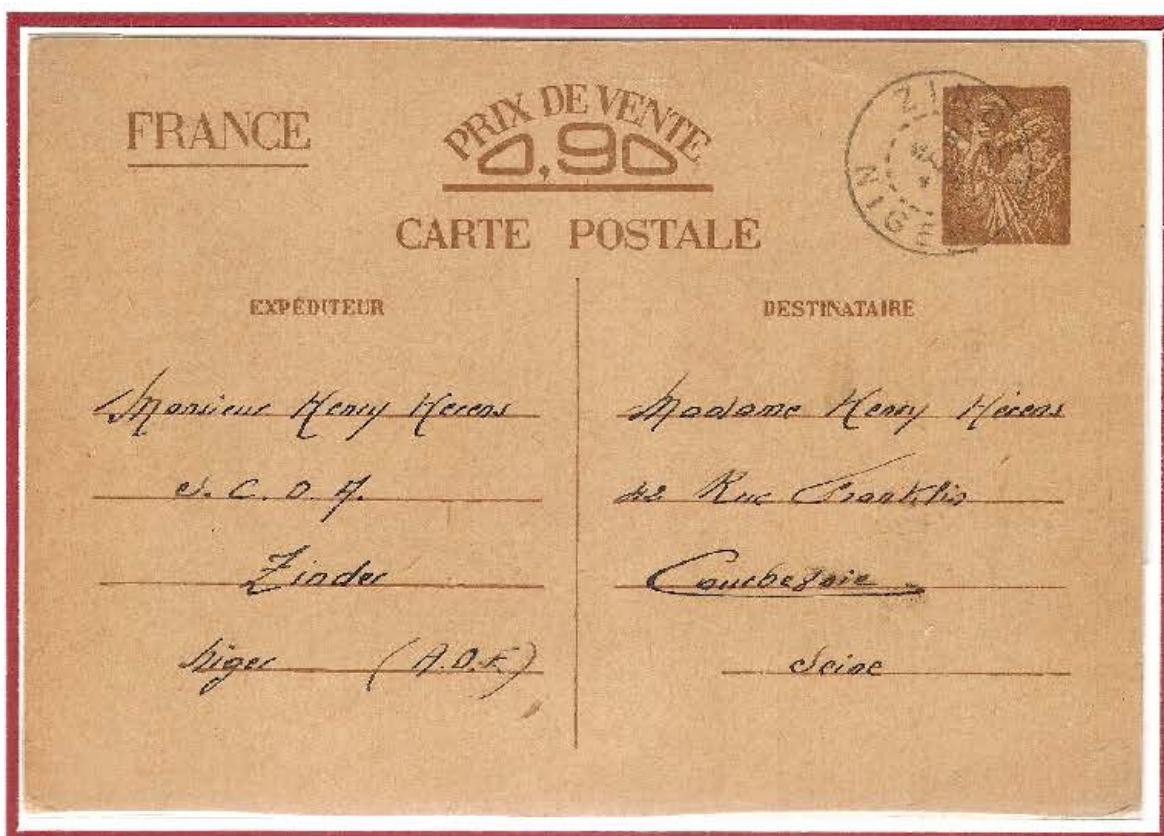 FRANCE
PRIX DE VENTE
0,90
CARTE POSTALE
EXPÉDITEUR
Monsieur Henry Herens
S. C. O. A.
Zinder
Niger (A.O.F.)
DESTINATAIRE
Madame Henry Hérens
42 Rue Franklin
Courbevoie
Seine
ZIND
NIGE